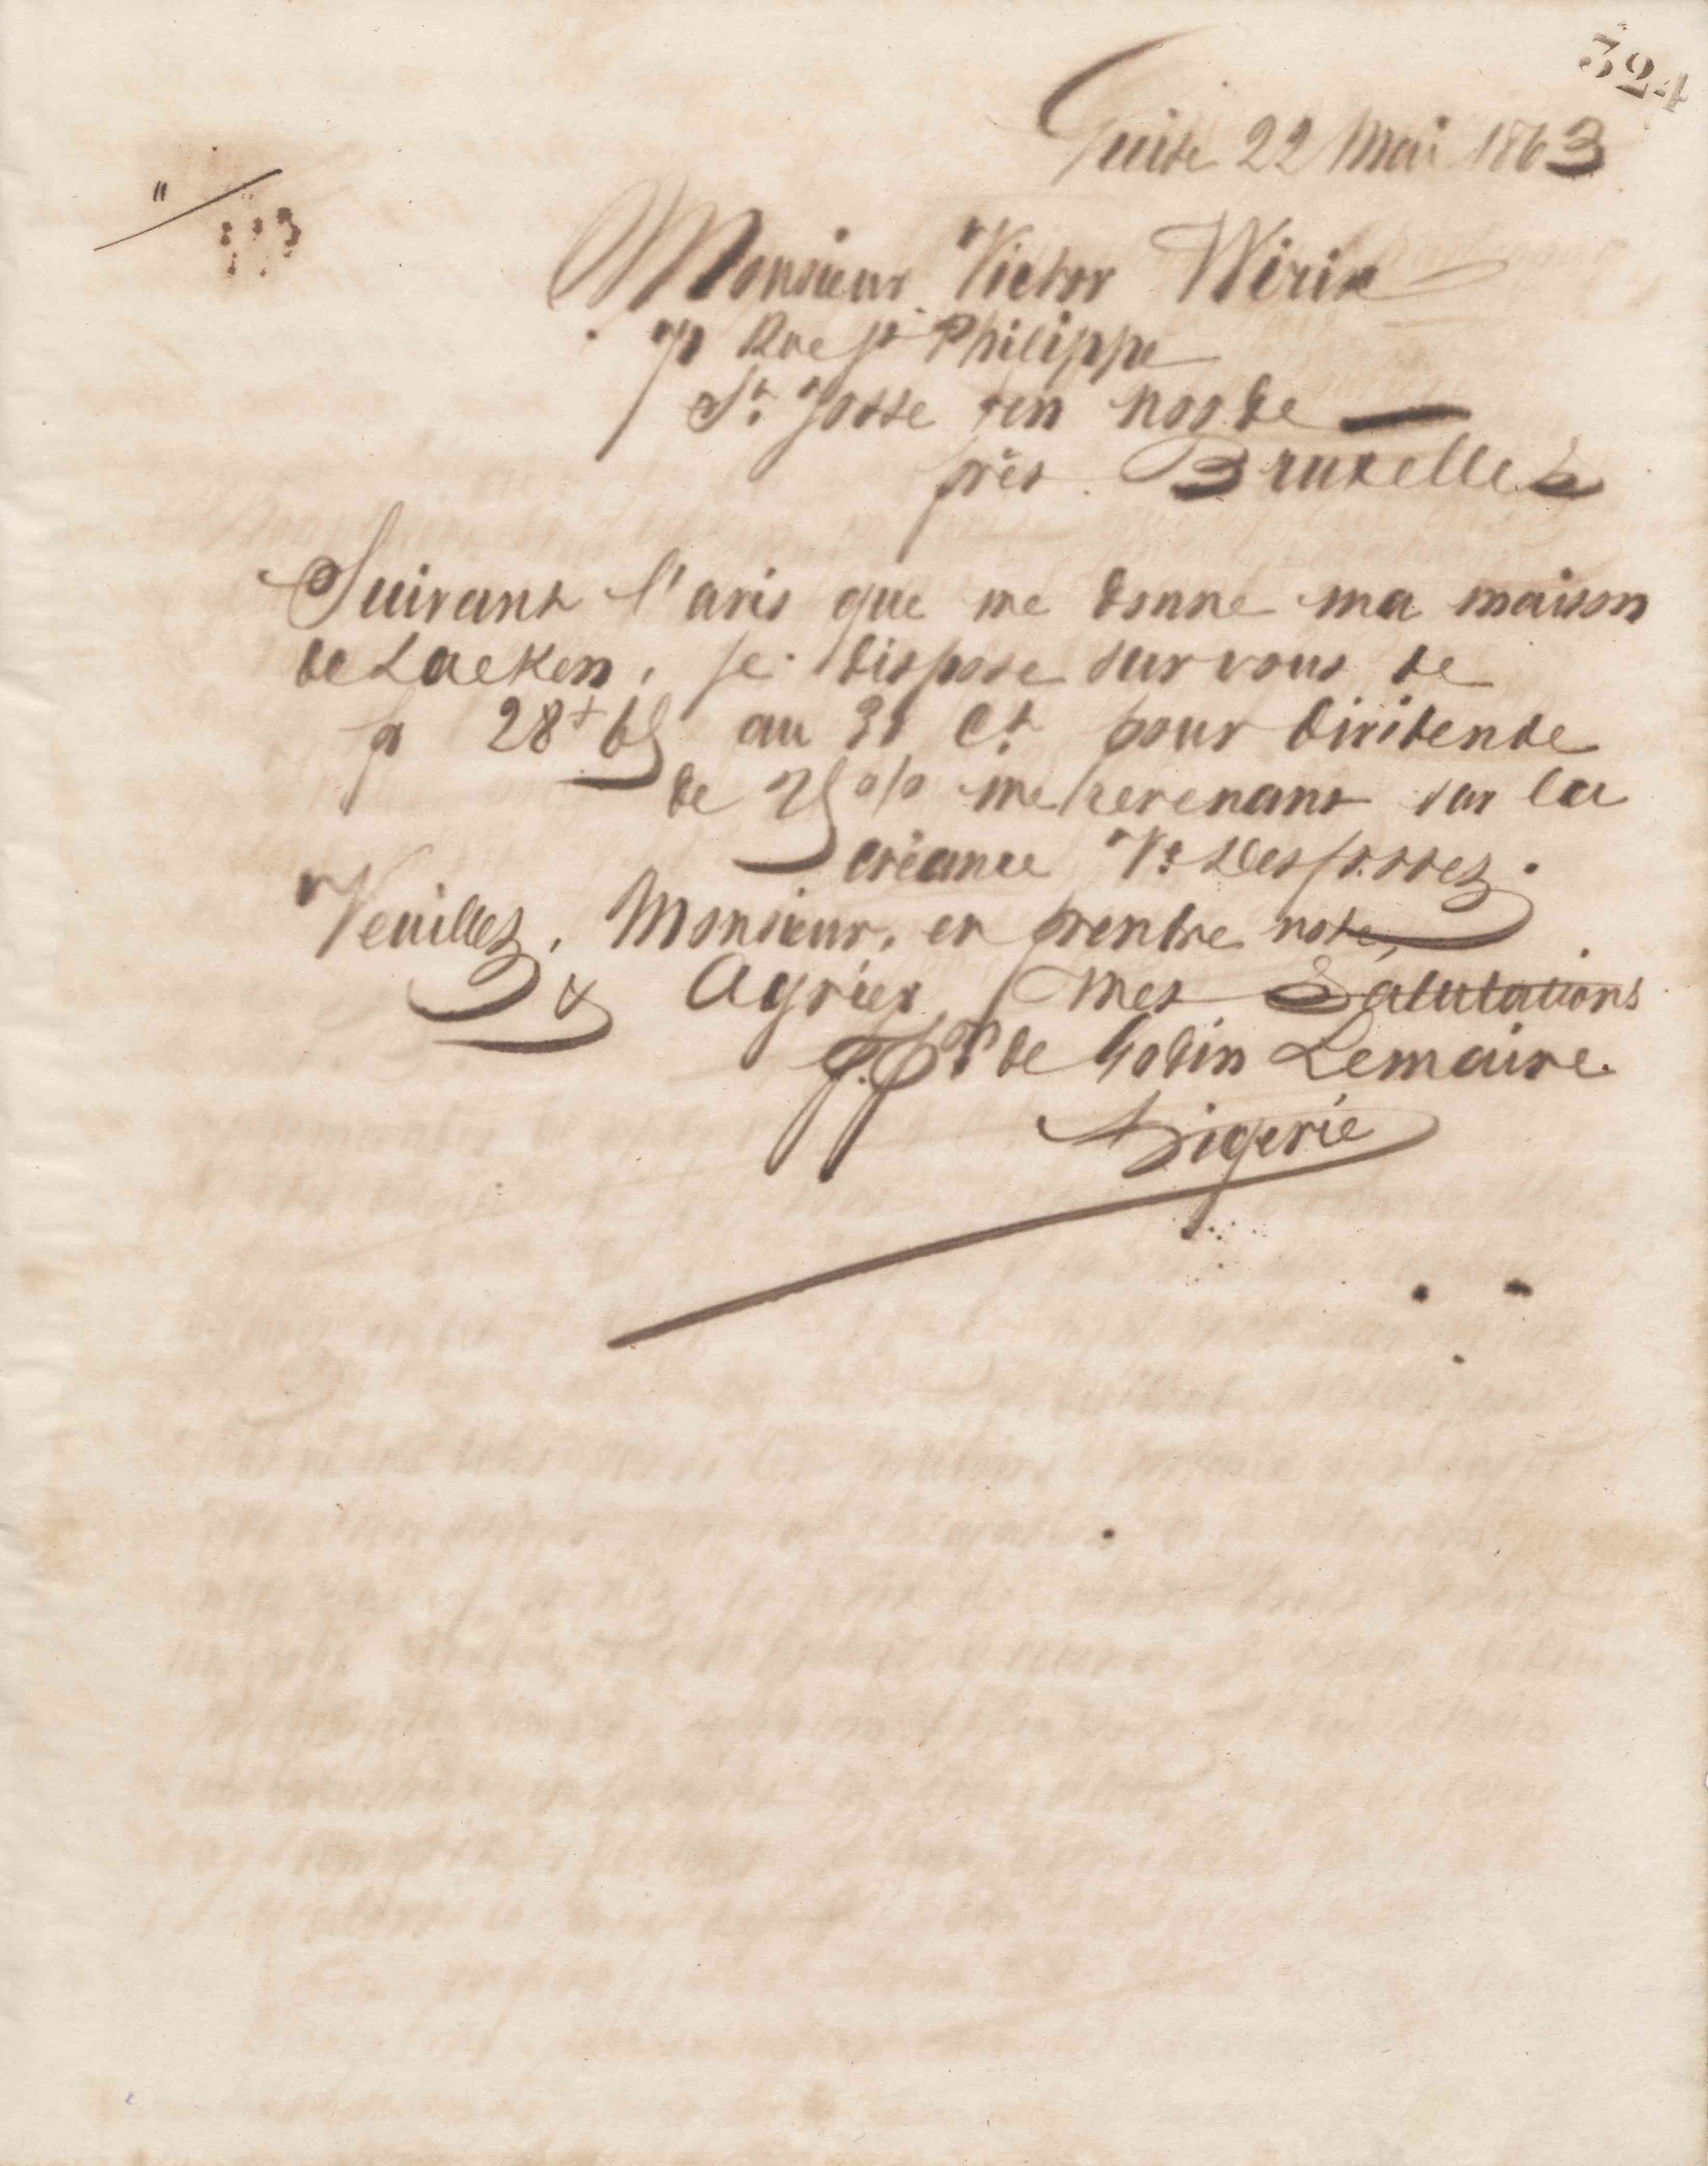 324
Guise 22 Mai 1863
Monsieur Victor Wirix
Rue St Philippe
St Josse ten noode
près Bruxelles
Suivant l'avis que me donne ma maison
de Laeken, je dispose sur vous de
28 f 65 au 31 Ct pour dividende
de 25 o/o me revenant sur la
créance Ve Desfossez.
Veuillez, Monsieur, en prendre note,
& Agréez mes Salutations
p. pon de Godin Lemaire.